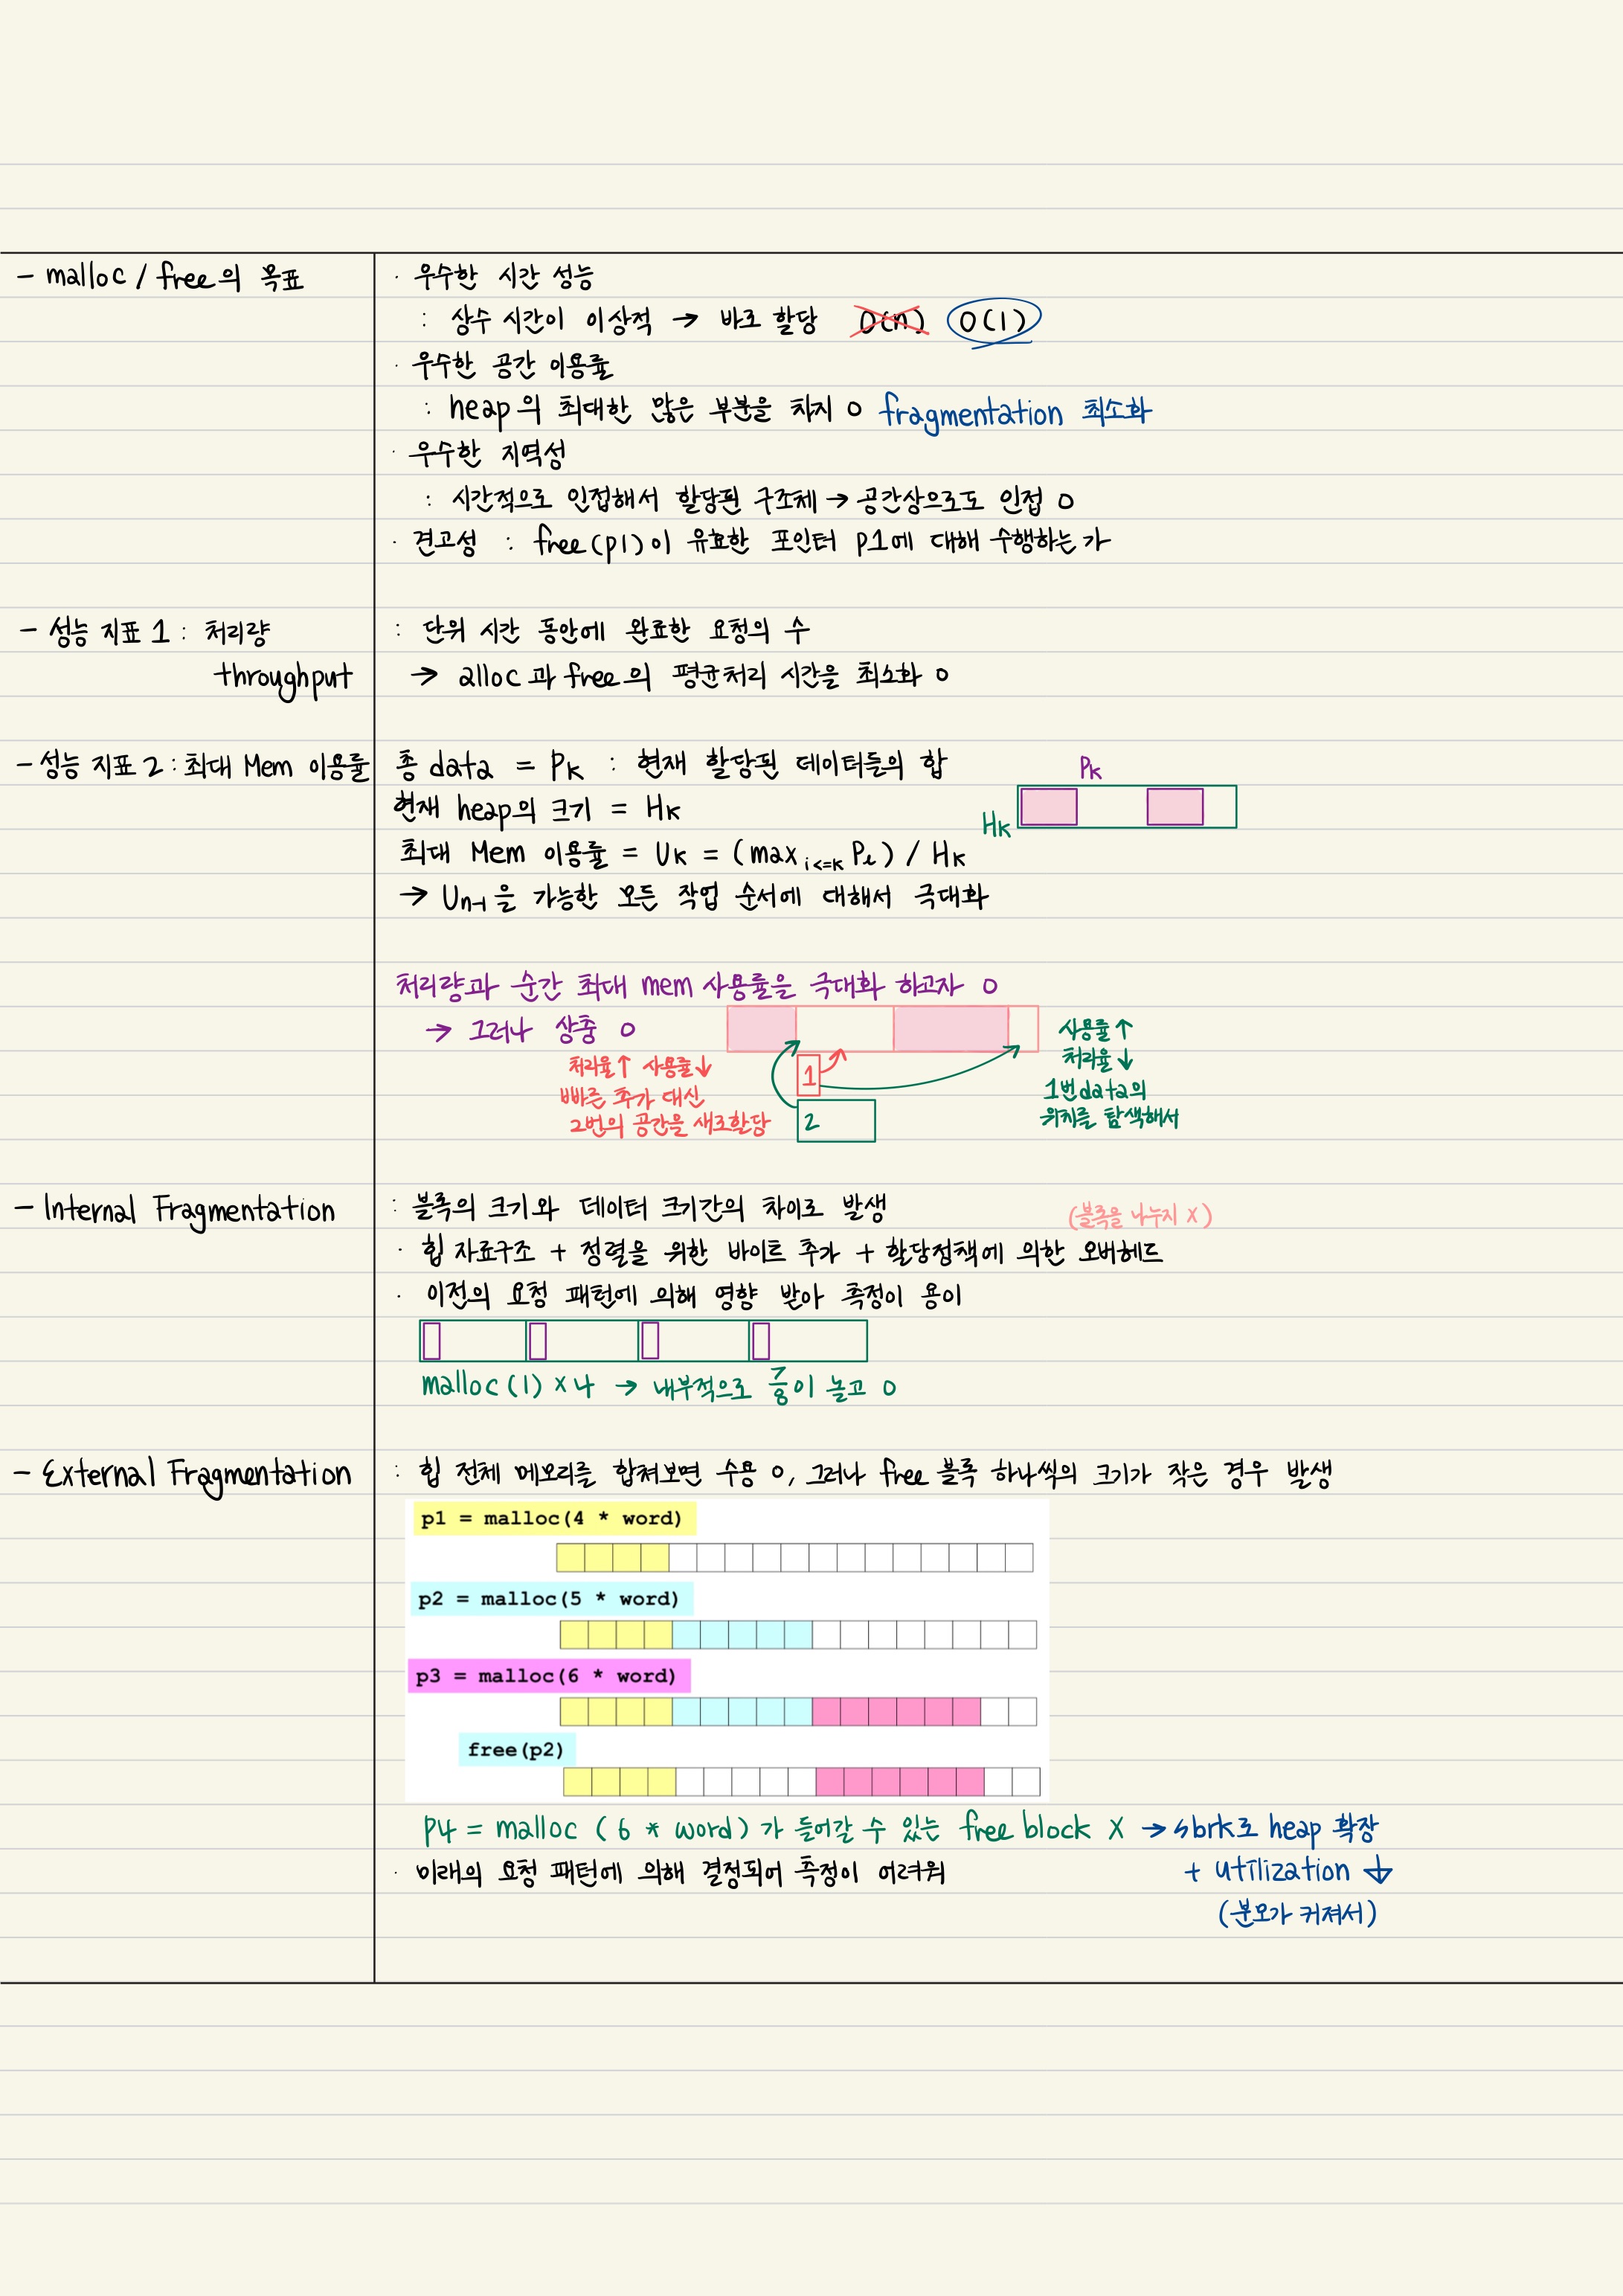 - malloc / free의 목표
· 우수한 시간 성능
: 상수 시간이 이상적 → 바로 할당 O(n) O(1)
· 우수한 공간 이용률
: heap의 최대한 많은 부분을 차지 O fragmentation 최소화
· 우수한 지역성
: 시간적으로 인접해서 할당된 구조체 → 공간상으로도 인접 O
· 견고성 : free(p1)이 유효한 포인터 p1에 대해 수행하는가
- 성능 지표 1 : 처리량
throughput
: 단위 시간 동안에 완료한 요청의 수
→ alloc과 free의 평균처리 시간을 최소화 O
- 성능 지표 2 : 최대 Mem 이용률
총 data = Pk : 현재 할당된 데이터들의 합
Pk
현재 heap의 크기 = Hk
Hk
최대 Mem 이용률 = Uk = (max i<=k Pi) / Hk
→ Un-1을 가능한 모든 작업 순서에 대해서 극대화
처리량과 순간 최대 mem 사용률을 극대화 하고자 O
→ 그러나 상충 O
처리율↑ 사용률↓
빠른 추가 대신
2번의 공간을 새로할당
1
2
사용률↑
처리율↓
1번data의
위치를 탐색해서
- Internal Fragmentation
: 블록의 크기와 데이터 크기간의 차이로 발생
(블록을 나누지 X)
· 힙 자료구조 + 정렬을 위한 바이트 추가 + 할당정책에 의한 오버헤드
· 이전의 요청 패턴에 의해 영향 받아 측정이 용이
malloc(1) x 4 → 내부적으로 7/8이 놀고 O
- External Fragmentation
: 힙 전체 메모리를 합쳐보면 수용 O, 그러나 free 블록 하나씩의 크기가 작은 경우 발생
p1 = malloc(4 * word)
p2 = malloc(5 * word)
p3 = malloc(6 * word)
free(p2)
P4 = malloc (6 * word)가 들어갈 수 있는 free block X → sbrk로 heap 확장
· 미래의 요청 패턴에 의해 결정되어 측정이 어려워
+ utilization ↓
(분모가 커져서)